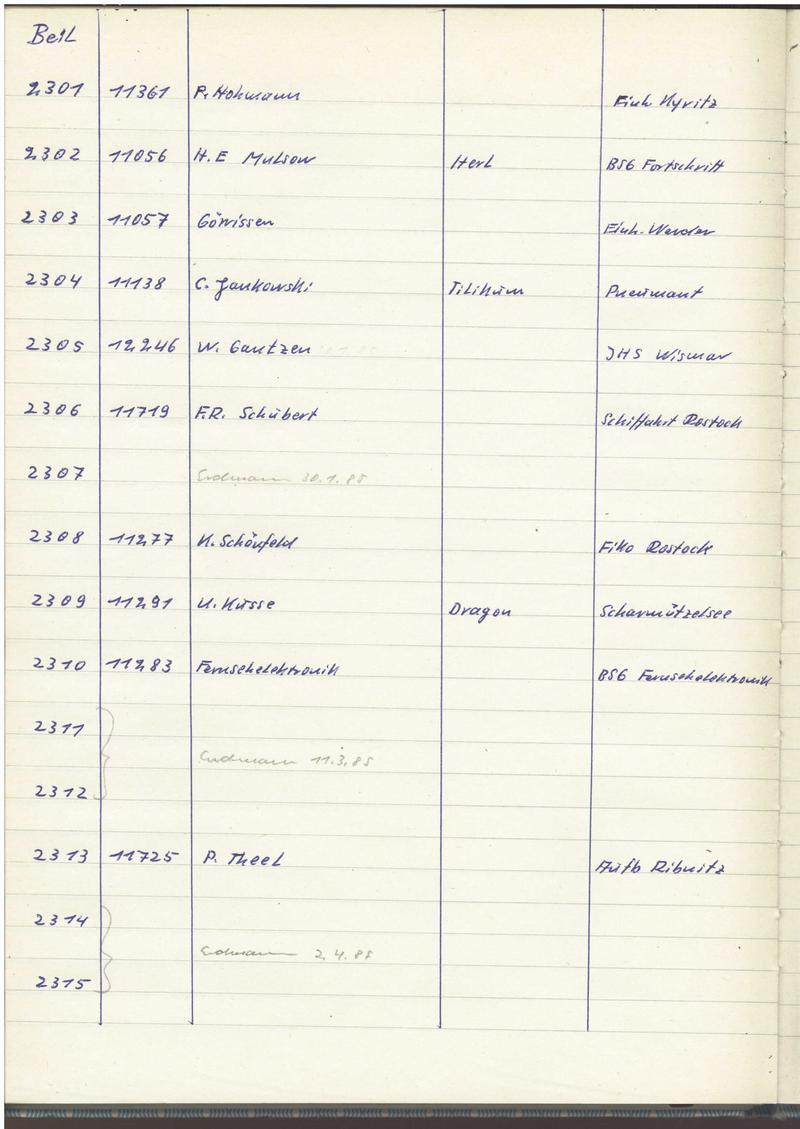 Beil
2301 11361 P. Hohmann Einh. Kyritz
2302 11056 H. E Mulsow Herl BSG Fortschritt
2303 11057 Görrissen Einh. Werder
2304 11138 C. Jankowski Tilikum Pneumant
2305 12246 W. Gantzen JHS Wismar
2306 11719 F.R. Schubert Schiffahrt Rostock
2307 Erdmann 30.1.85
2308 11277 K. Schönfeld Fiko Rostock
2309 11291 U. Kusse Dragon Scharmützelsee
2310 11283 Fernsehelektronik BSG Fernsehelektronik
2311
Erdmann 11.3.85
2312
2313 11725 P. Theel Aufb Ribnitz
2314
Erdmann 2.4.85
2315